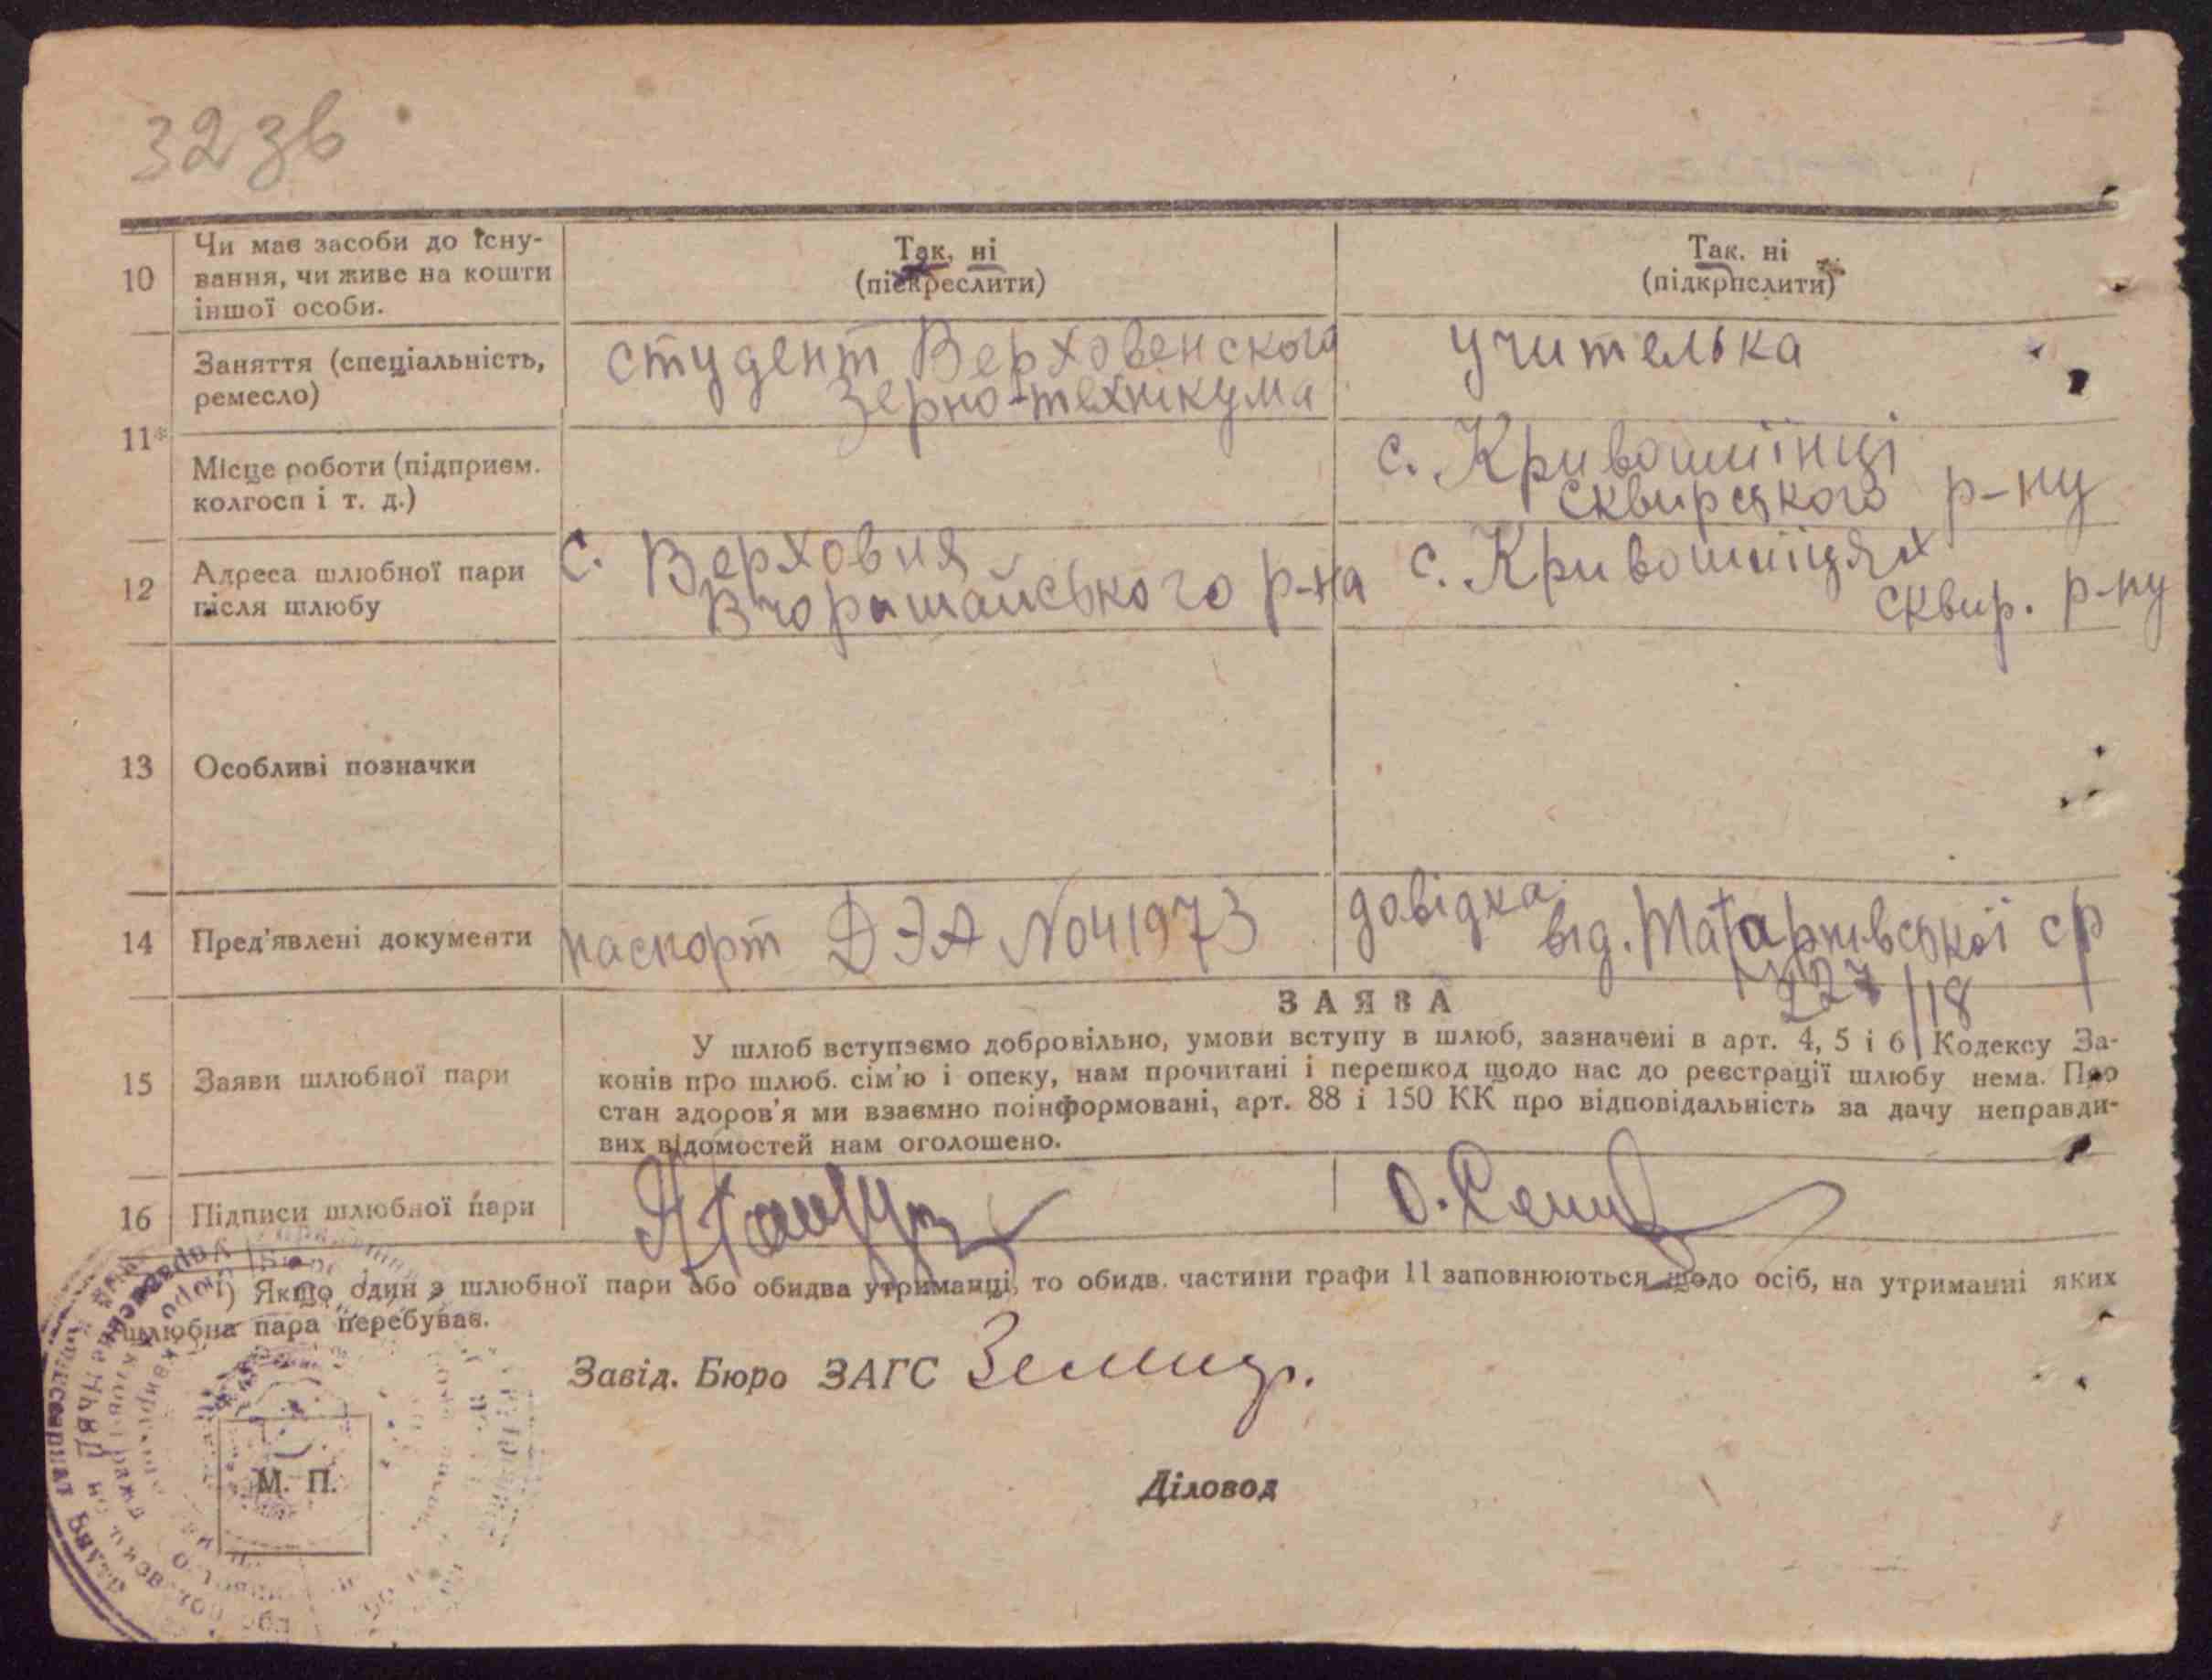 32 зв
10 Чи має засоби до існу-
вання, чи живе на кошти
іншої особи.
Так, ні
(підкреслити)
Так. ні
(підкреслити)
11* Заняття (спеціальність,
ремесло)
студент Верховенского
Зерно-технікума
учителька
Місце роботи (підприєм.
колгосп і т. д.)
с. Кривошиїнці
Сквирського р-ну
12 Адреса шлюбної пари
після шлюбу
с. Верховня
Вчорашайського р-на
с. Кривошиїцях
Сквир. р-ну
13 Особливі позначки
14 Пред'явлені документи
паспорт ДЭА №041973
довідка
від. Татарнівської ср
127/18
15 Заяви шлюбної пари
ЗАЯВА
У шлюб вступаємо добровільно, умови вступу в шлюб, зазначені в арт. 4, 5 і 6 Кодексу За-
конів про шлюб. сім'ю і опеку, нам прочитані і перешкод щодо нас до реєстрації шлюбу нема. Про
стан здоров'я ми взаємно поінформовані, арт. 88 і 150 КК про відповідальність за дачу неправди-
вих відомостей нам оголошено.
16 Підписи шлюбної пари
О.
*) Якщо один з шлюбної пари або обидва утриманці, то обидв. частини графи 11 заповнюються щодо осіб, на утриманні яких
шлюбна пара перебуває.
Завід. Бюро ЗАГС
Діловод
М. П.